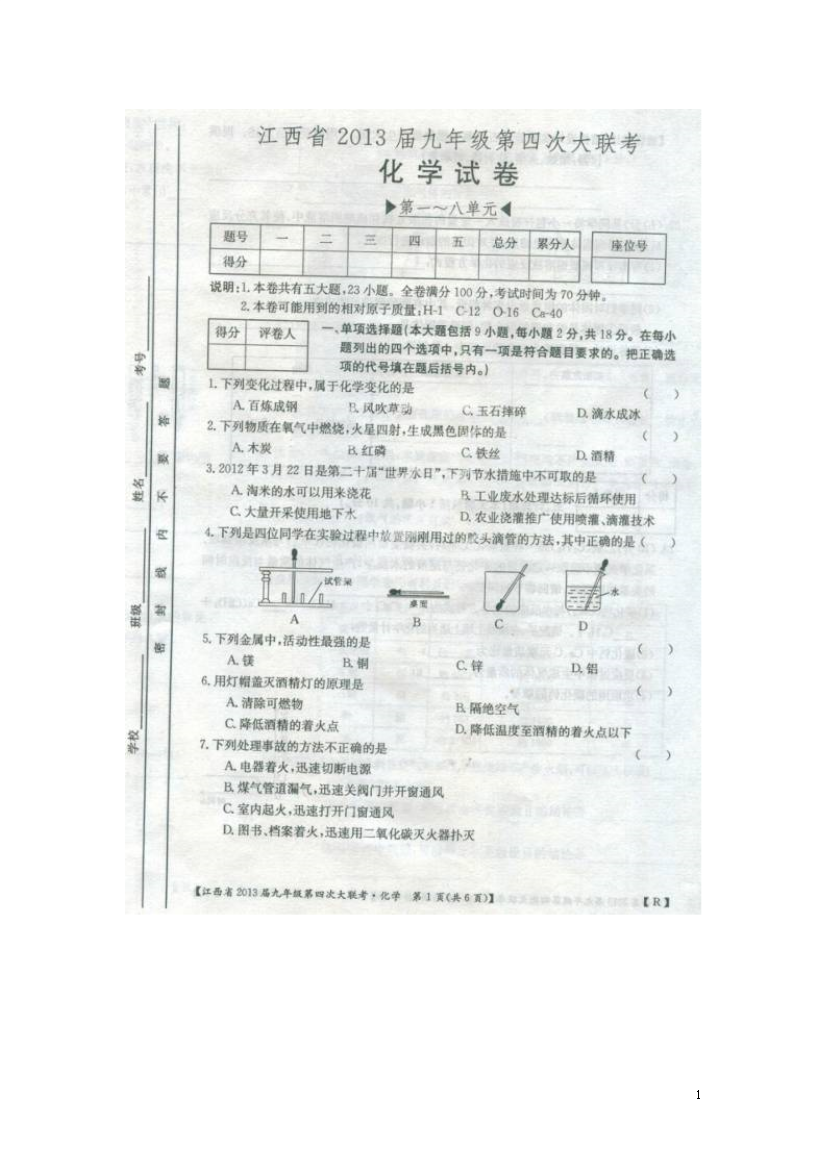 江西省2013届九年级第四次大联考
化学试卷
▶第一～八单元◀
题号 一 二 三 四 五 总分 累分人 座位号
得分
说明:1.本卷共有五大题,23小题。全卷满分100分,考试时间为70分钟。
2.本卷可能用到的相对原子质量:H-1 C-12 O-16 Ca-40
得分 评卷人
一、单项选择题(本大题包括9小题,每小题2分,共18分。在每小
题列出的四个选项中,只有一项是符合题目要求的。把正确选
项的代号填在题后括号内。)
1.下列变化过程中,属于化学变化的是 ( )
A.百炼成钢 B.风吹草动 C.玉石摔碎 D.滴水成冰
2.下列物质在氧气中燃烧,火星四射,生成黑色固体的是 ( )
A.木炭 B.红磷 C.铁丝 D.酒精
3.2012年3月22日是第二十届“世界水日”,下列节水措施中不可取的是 ( )
A.淘米的水可以用来浇花 B.工业废水处理达标后循环使用
C.大量开采使用地下水 D.农业浇灌推广使用喷灌、滴灌技术
4.下列是四位同学在实验过程中放置刚刚用过的胶头滴管的方法,其中正确的是( )
试管架
桌面
水
A B C D
5.下列金属中,活动性最强的是 ( )
A.镁 B.铜 C.锌 D.铝
6.用灯帽盖灭酒精灯的原理是 ( )
A.清除可燃物 B.隔绝空气
C.降低酒精的着火点 D.降低温度至酒精的着火点以下
7.下列处理事故的方法不正确的是 ( )
A.电器着火,迅速切断电源
B.煤气管道漏气,迅速关阀门并开窗通风
C.室内起火,迅速打开门窗通风
D.图书、档案着火,迅速用二氧化碳灭火器扑灭
【江西省2013届九年级第四次大联考·化学 第1页(共6页)】 【R】
学校
班级
姓名
考号
密封线内不要答题
1